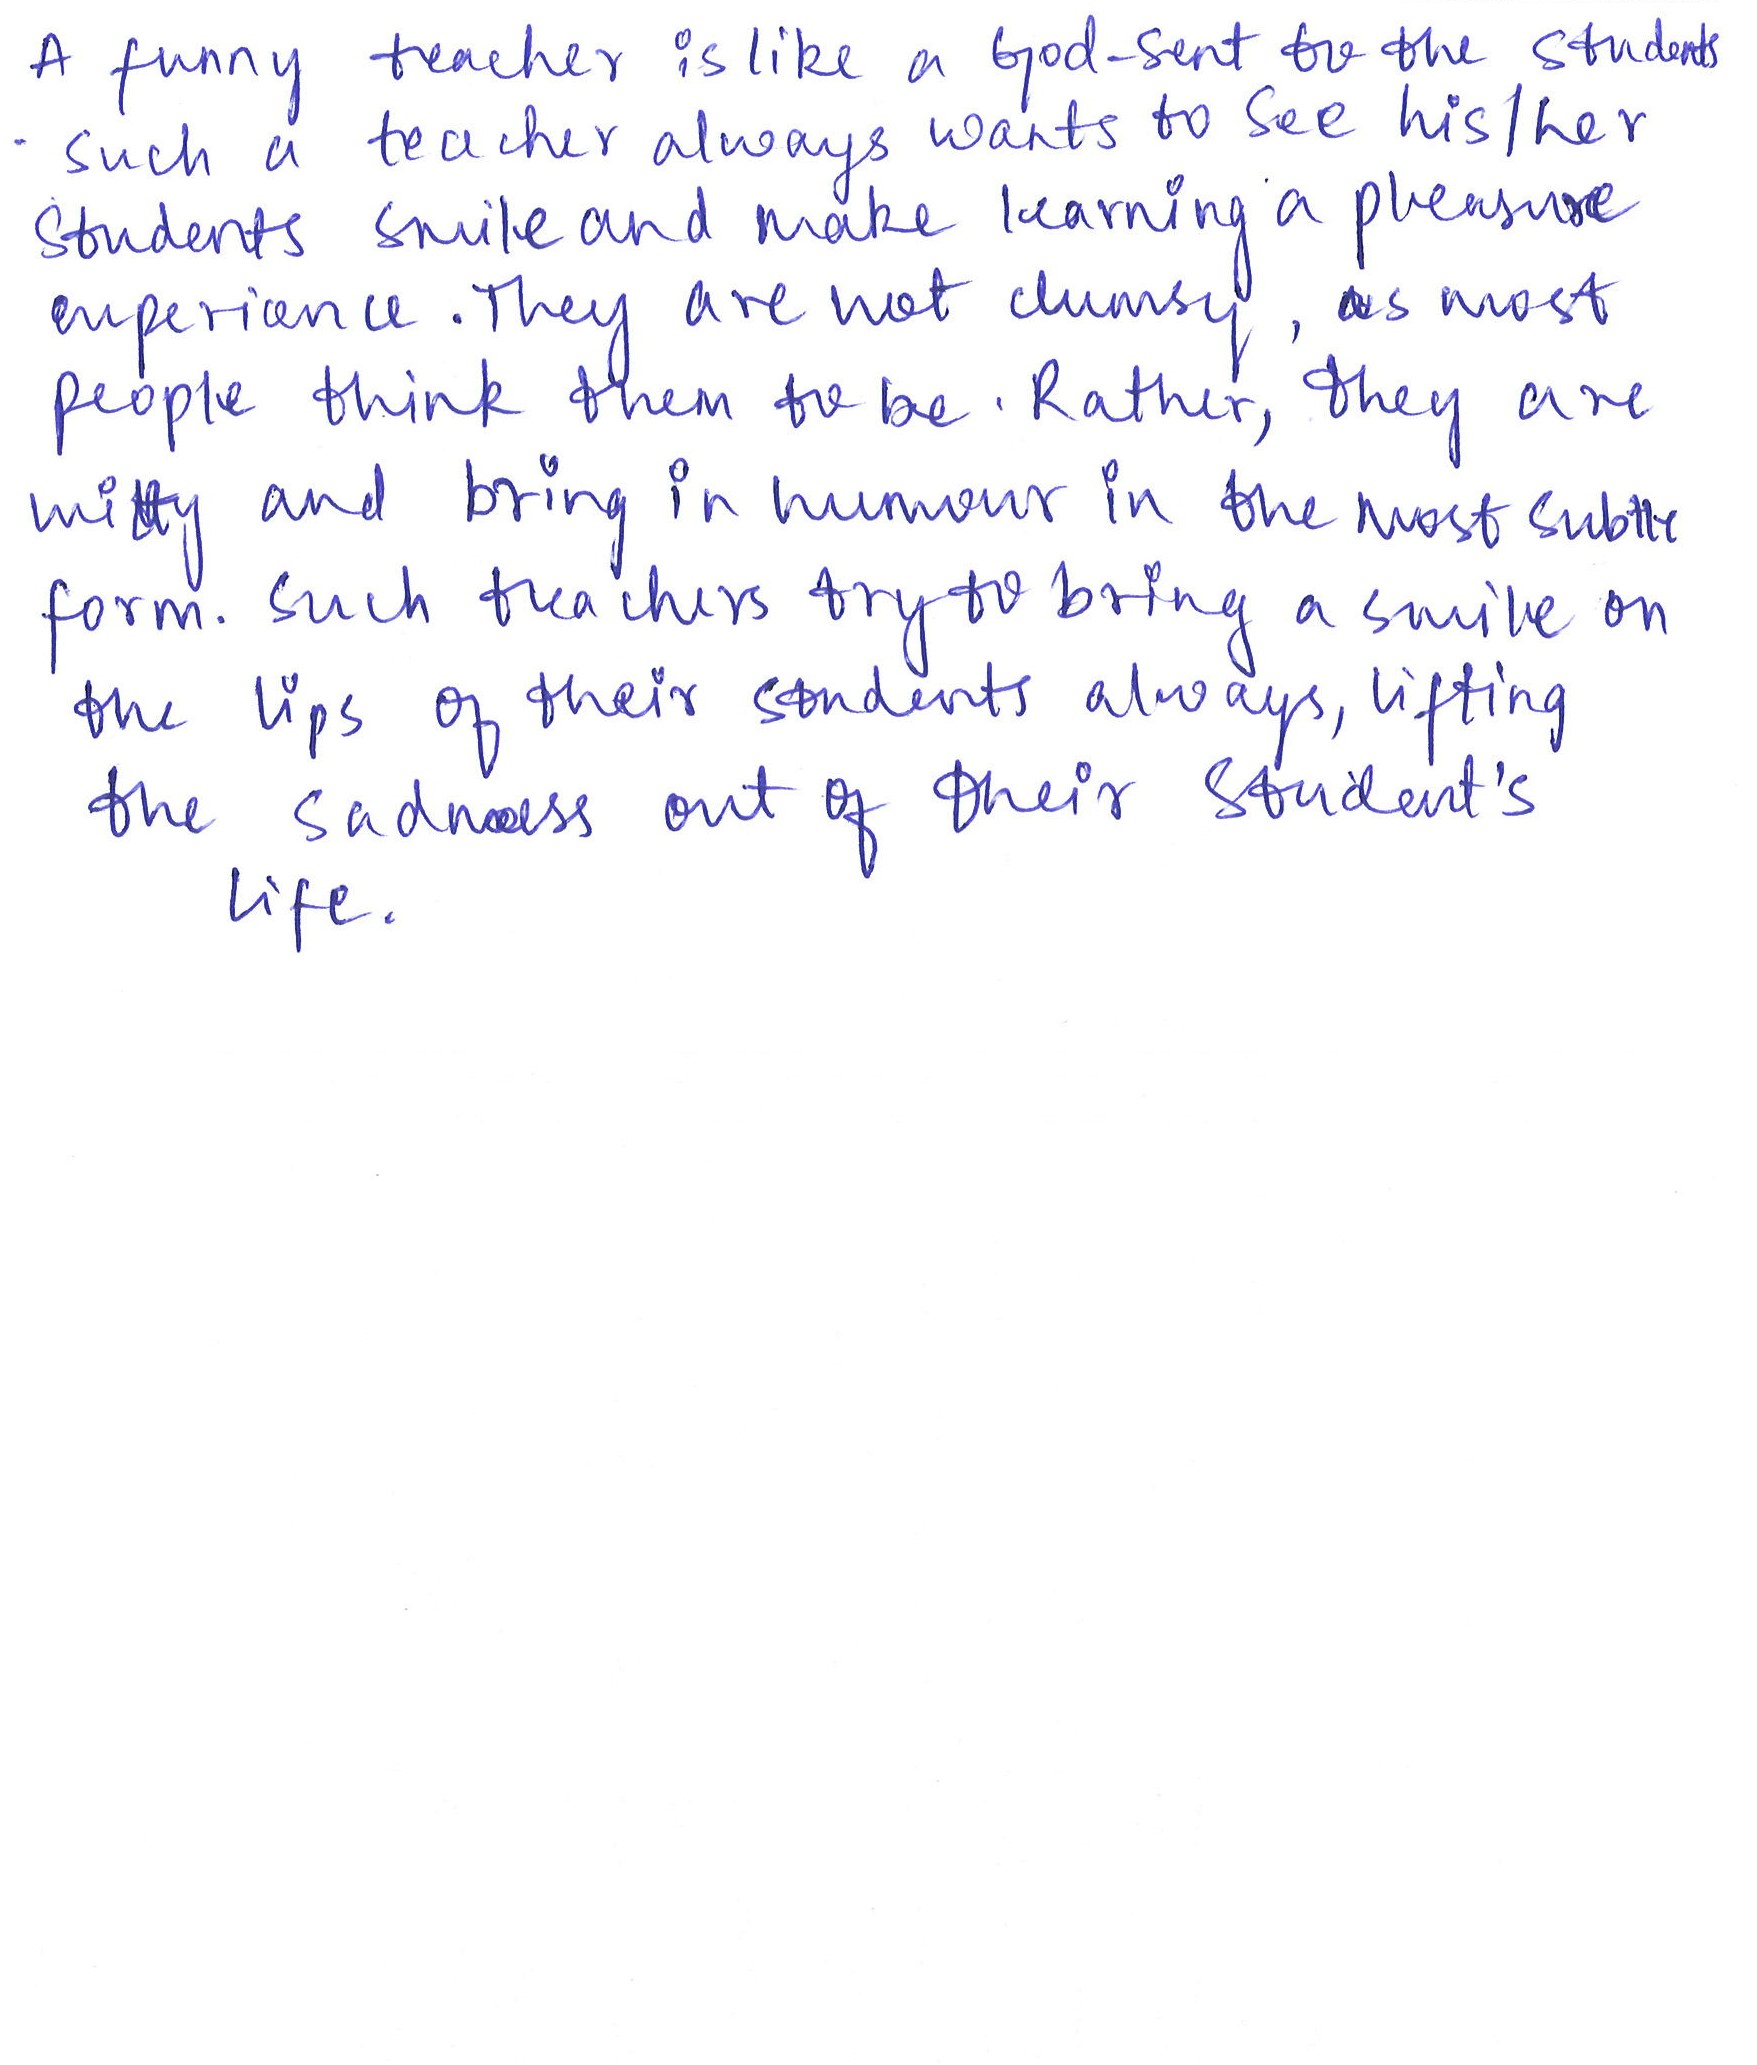 A funny teacher is like a God-sent to the students
. such a teacher always wants to see his/her
students smile and make learning a pleasure
experience. They are not clumsy, as most
people think them to be. Rather, they are
witty and bring in humour in the most subtle
form. Such teachers try to bring a smile on
the lips of their students always, lifting
the sadness out of their student's
life.